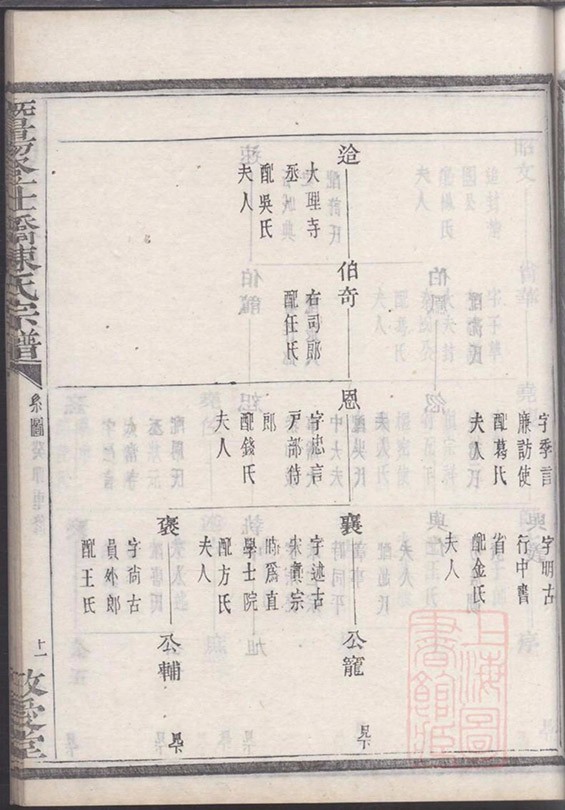 字季言
廉訪使
配葛氏
夫人
字明古
行中書
省
配金氏
夫人
迨
大理寺
丞
配吳氏
夫人
伯奇
右司郎
配任氏
恩
字忠言
戶部侍
郎
配錢氏
夫人
襄
字述古
宋真宗
時為直
學士院
配方氏
夫人
公寵
褒
字尚古
員外郎
配王氏
公輔
陳氏宗譜
系圖
敬愛堂
上海圖書館藏